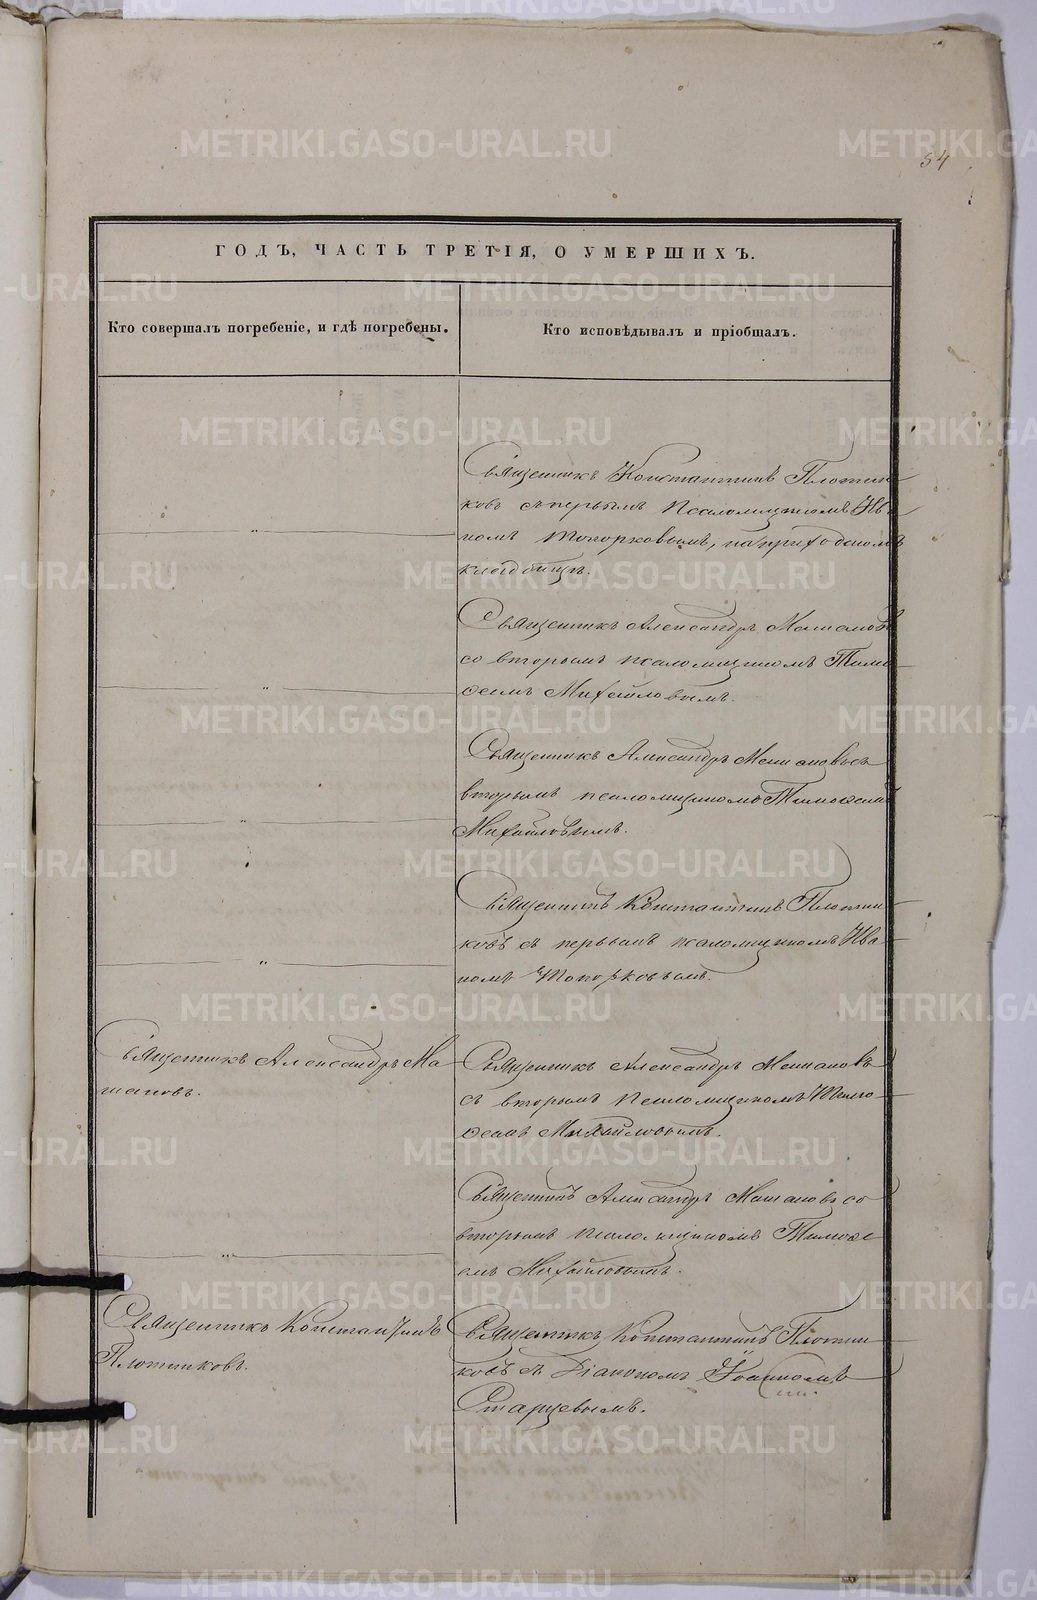 54
ГОДЪ, ЧАСТЬ ТРЕТІЯ, О УМЕРШИХЪ.
Кто совершалъ погребеніе, и гдѣ погребены.
Кто исповѣдывалъ и пріобщалъ.
Священникъ Константинъ Плотни-
ковъ съ первымъ псаломщикомъ Ива-
номъ Топорковымъ, на приходскомъ
кладбищѣ.
Священникъ Александръ Машановъ
со вторымъ псаломщикомъ Тимо-
ѳеемъ Михайловымъ.
Священникъ Александръ Машановъ съ
вторымъ псаломщикомъ Тимоѳеемъ
Михайловымъ.
Священникъ Константинъ Плотни-
ковъ съ первымъ псаломщикомъ Ива-
номъ Топорковымъ.
Священникъ Александръ Ма-
шановъ.
Священникъ Александръ Машановъ
съ вторымъ псаломщикомъ Тимо-
ѳеемъ Михайловымъ.
Священникъ Александръ Машановъ со
вторымъ псаломщикомъ Тимоѳе-
емъ Михайловымъ.
Священникъ Константинъ
Плотниковъ.
Священникъ Константинъ Плотни-
ковъ съ Діакономъ Іоанномъ
Старцевымъ.
METRIKI.GASO-URAL.RU